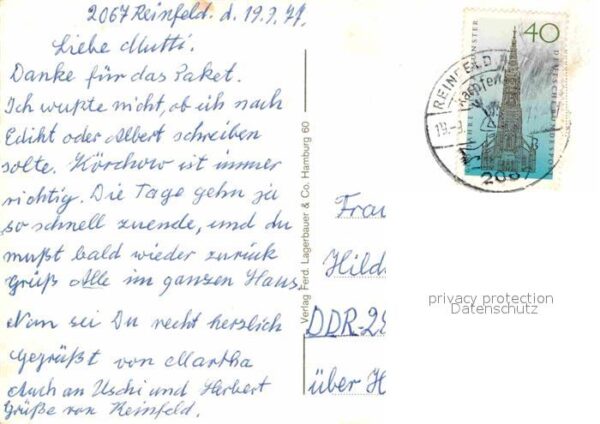 2067 Reinfeld. d. 19.9.77.
Liebe Mutti.
Danke für das Paket.
Ich wußte nicht, ob ich nach
Edikt oder Albert schreiben
solte. Körchow ist immer
richtig. Die Tage gehn ja
so schnell zuende, und du
mußt bald wieder zurück
Grüß Alle im ganzen Haus.
Nun sei Du recht herzlich
Gegrüßt von Martha
Auch an Uschi und Herbert
Grüße von Reinfeld.
Verlag Ferd. Lagerbauer & Co. Hamburg 60
40
REINFELD
Karpfen
19.-9.
2067
Frau
Hild
DDR-28
über H
privacy protection
Datenschutz